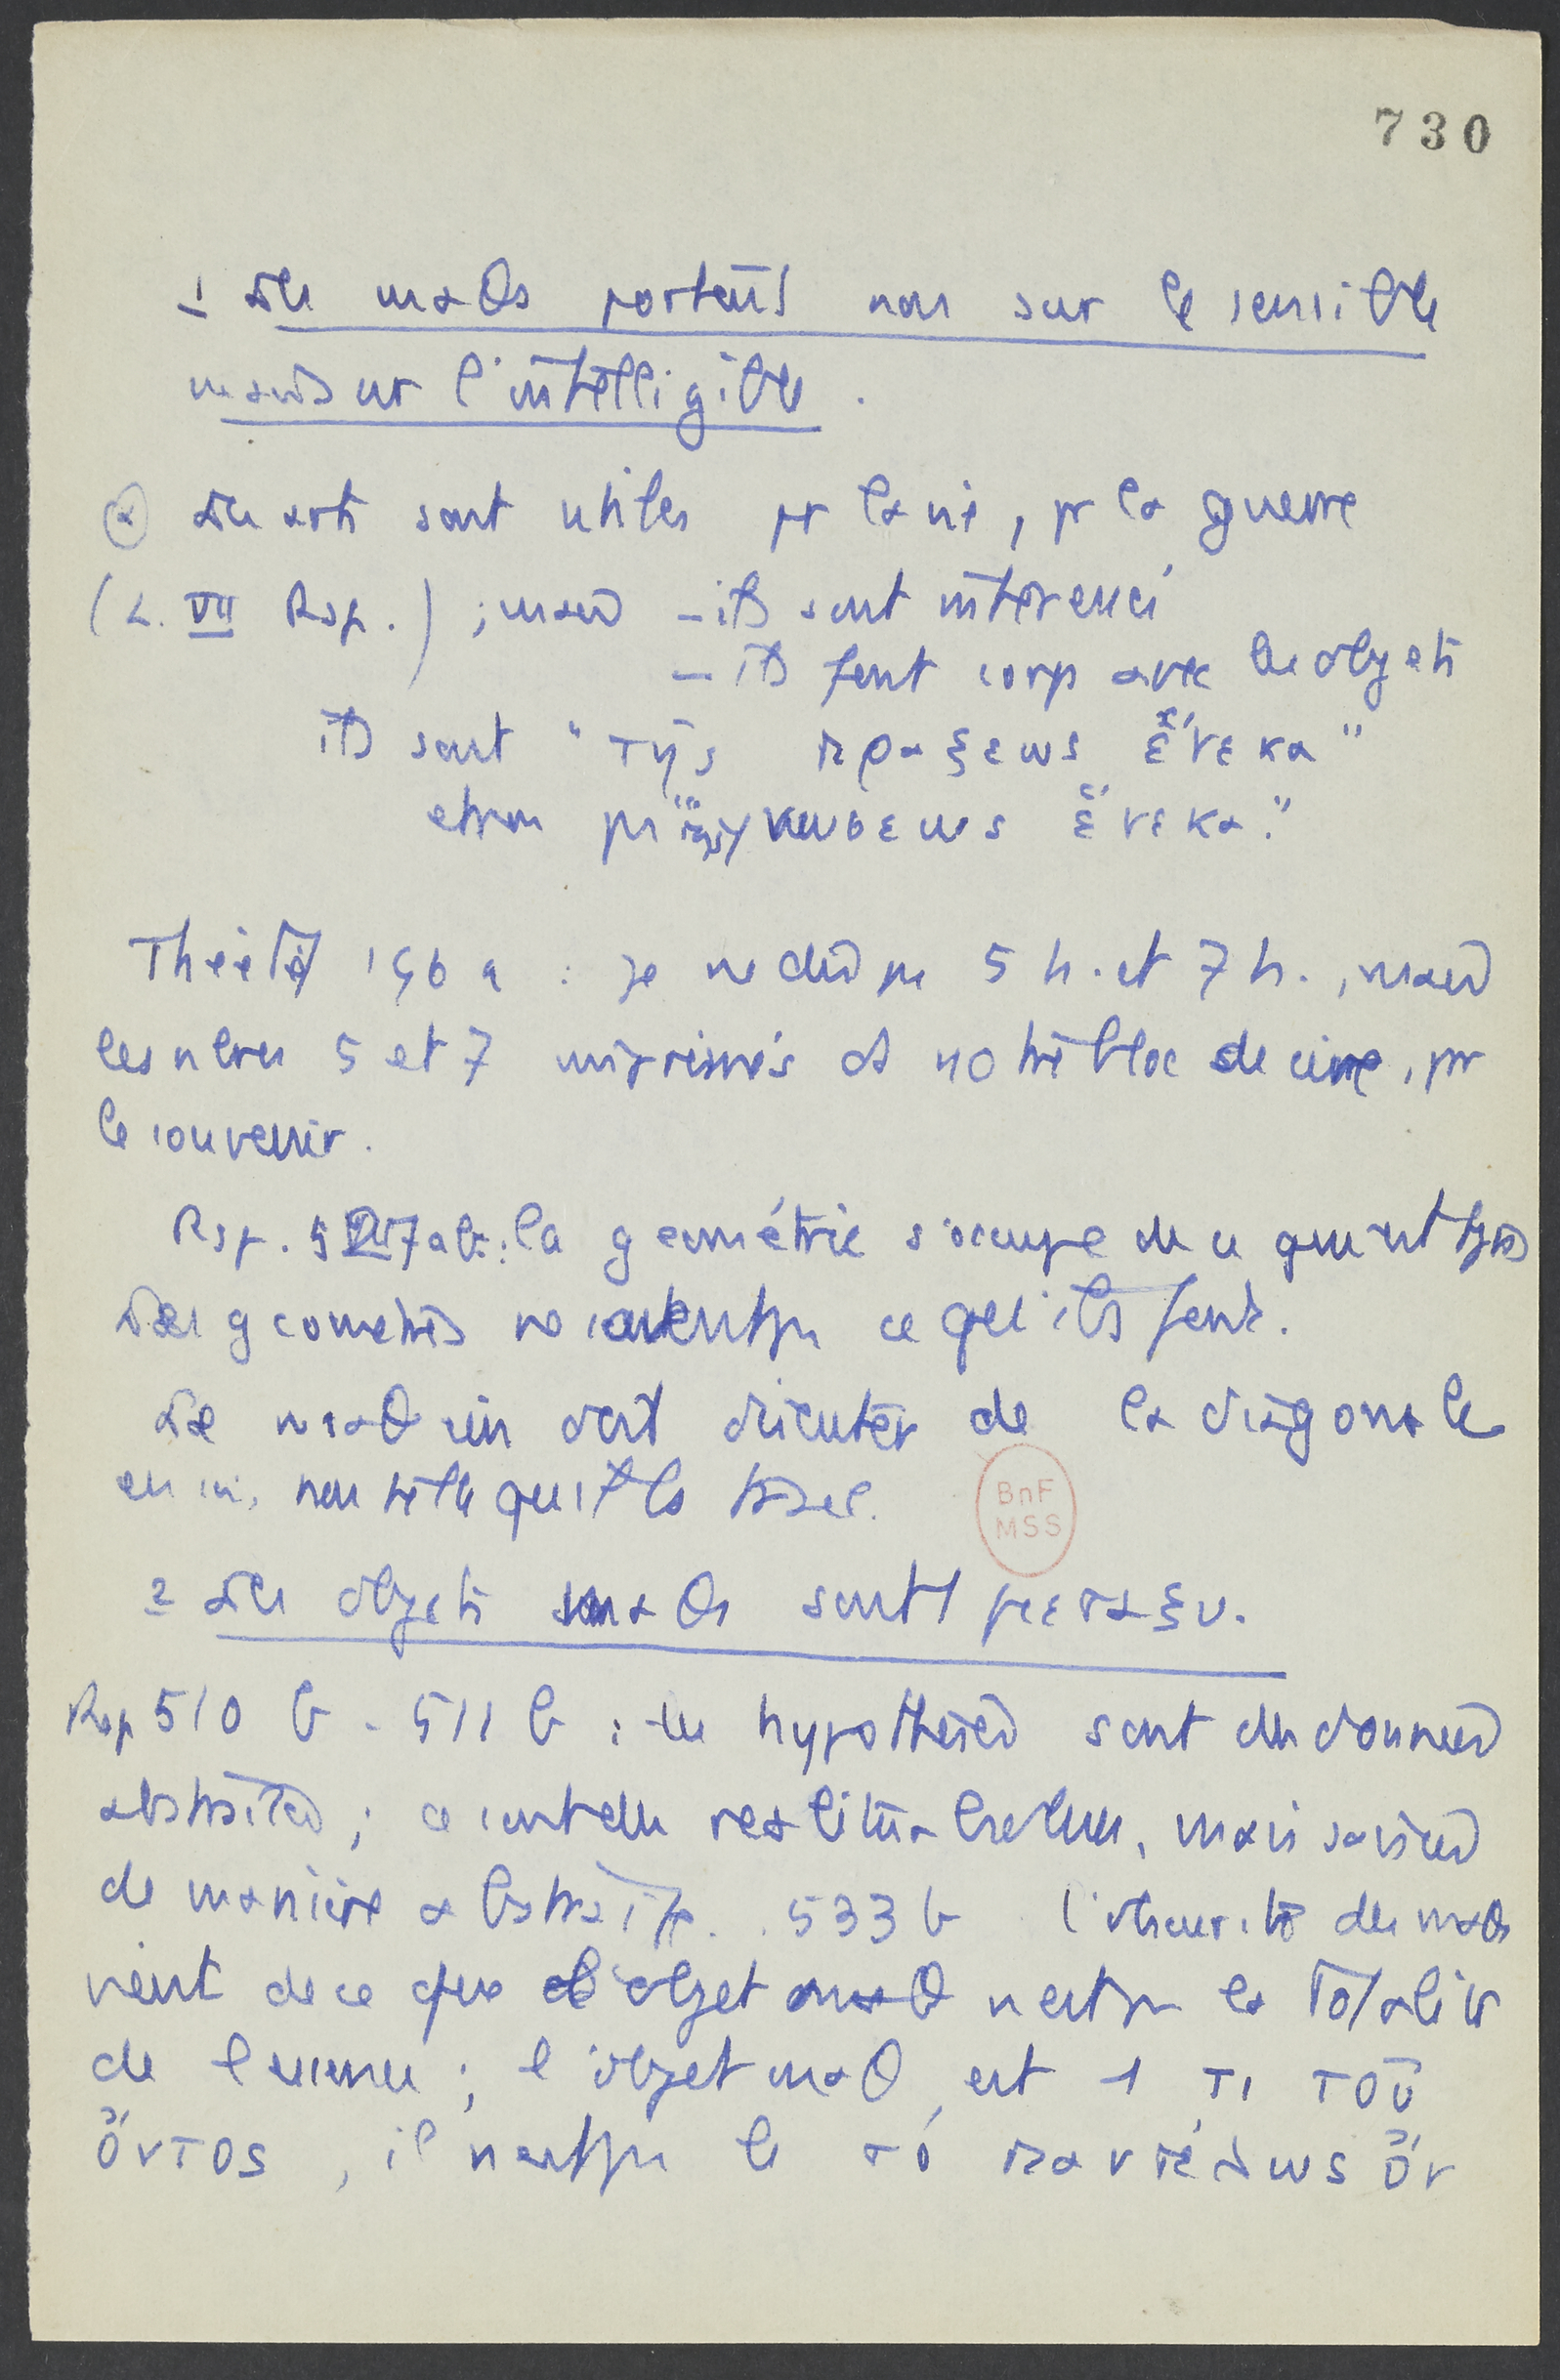 730
1 Les maths portent non sur le sensible
mais sur l'intelligible.
a Les arts sont utiles pr la vie, pr la guerre
(L. VII Rep.) ; mais – ils sont intéressés
– ils font corps avec les objets
ils sont "τῆς πραξεως ἕνεκα"
et non pas "τῆς γνωσεως ἕνεκα."
Théétète 196 a : je ne dis pas 5 h. et 7 h., mais
les nbres 5 et 7 imprimés ds notre bloc de cire, pr
le souvenir.
Rep. 527 ab : la géométrie s'occupe de ce qui est tjrs
Les géomètres ne savent pas ce qu'ils font.
Le mathcien doit discuter de la diagonale
en soi, non celle qu'il a tracée.
2 Les objets maths sont μεταξυ.
Rep 510 b - 511 b : les hypothèses sont des données
abstraites ; ce sont des réalités absolues, mais saisies
de manière abstraite. 533 b l'obscurité des maths
vient de ce que l'objet math n'est pas la totalité
de l'essence ; l'objet math est 1 τι τοῦ
ὄντος, il n'est pas le τό παντέλως ὄν
BnF
MSS